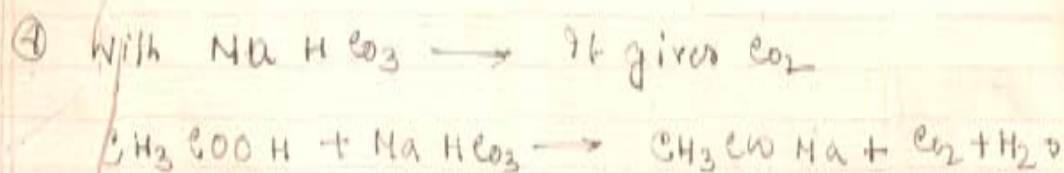 ④ With NaHCO3 → It gives CO2
CH3COOH + NaHCO3 → CH3COONa + CO2 + H2O